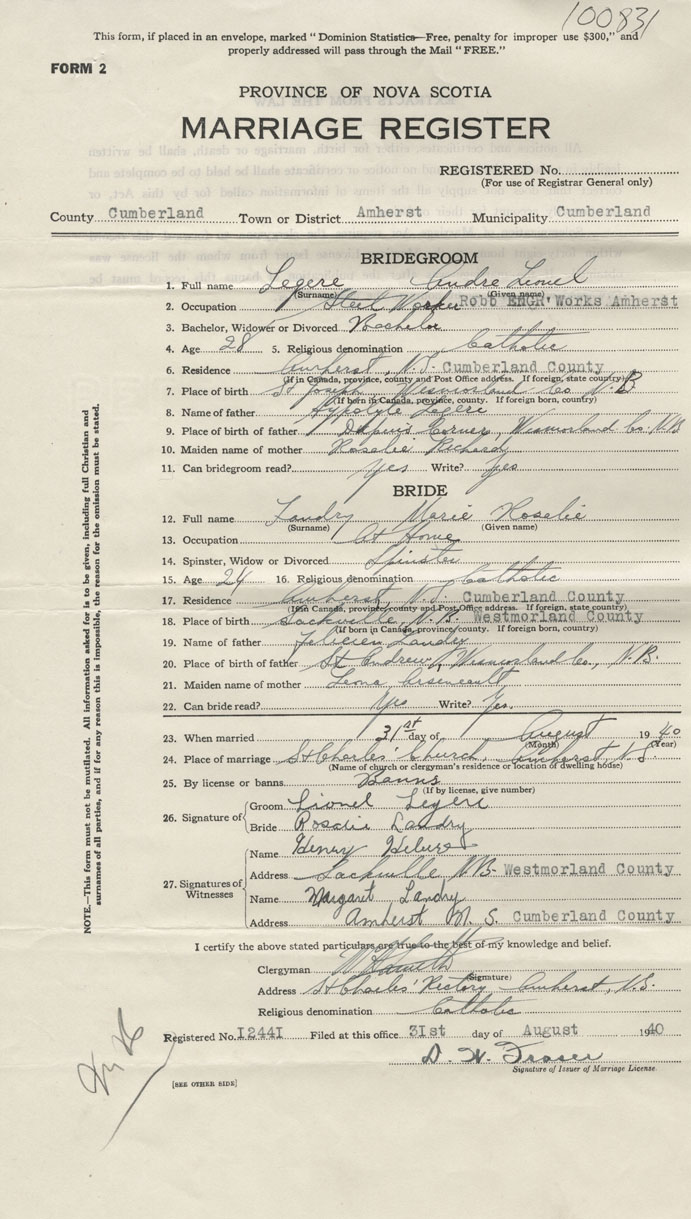 100831
This form, if placed in an envelope, marked "Dominion Statistics—Free, penalty for improper use $300," and
properly addressed will pass through the Mail "FREE."
FORM 2
PROVINCE OF NOVA SCOTIA
MARRIAGE REGISTER
REGISTERED No.
(For use of Registrar General only)
County Cumberland Town or District Amherst Municipality Cumberland
BRIDEGROOM
1. Full name Legere Andre Lionel
(Surname) (Given name)
2. Occupation Steel Worker Robb ENGR'Works Amherst
3. Bachelor, Widower or Divorced Bachelor
4. Age 28 5. Religious denomination Catholic
6. Residence Amherst, N.S. Cumberland County
(If in Canada, province, county and Post Office address. If foreign, state country)
7. Place of birth St Joseph Wesmorland Co N.B
(If born in Canada, province, county. If foreign born, country)
8. Name of father Hypolyte Legere
9. Place of birth of father Dupuis Corner, Wesmorland Co. N.B
10. Maiden name of mother Roselie Richard
11. Can bridegroom read? yes Write? yes
BRIDE
12. Full name Landry Marie Roselie
(Surname) (Given name)
13. Occupation At Home
14. Spinster, Widow or Divorced Spinster
15. Age 24 16. Religious denomination Catholic
17. Residence Amherst, N.S. Cumberland County
(If in Canada, province, county and Post Office address. If foreign, state country)
18. Place of birth Sackville, N.B. Westmorland County
(If born in Canada, province, county. If foreign born, country)
19. Name of father Felicien Landry
20. Place of birth of father St Andrew, Wesmorland Co., N.B.
21. Maiden name of mother Leona Arseneault
22. Can bride read? Yes Write? Yes.
23. When married 31st day of August 1940
(Month) (Year)
24. Place of marriage St Charles' Church, Amherst, N.S.
(Name of church or clergyman's residence or location of dwelling house)
25. By license or banns Banns
(If by license, give number)
26. Signature of
Groom Lionel Legere
Bride Roselie Landry
27. Signatures of Witnesses
Name Henry
Address Sackville N B- Westmorland County
Name Margaret Landry
Address Amherst N. S. Cumberland County
I certify the above stated particulars are true to the best of my knowledge and belief.
Clergyman
(Signature)
Address St Charles' Rectory Amherst, N.S.
Religious denomination Catholic
Registered No. I244I Filed at this office 31st day of August 1940
D. W. Fraser
Signature of Issuer of Marriage License.
[SEE OTHER SIDE]
NOTE.—This form must not be mutilated. All information asked for is to be given, including full Christian and
surnames of all parties, and if for any reason this is impossible, the reason for the omission must be stated.